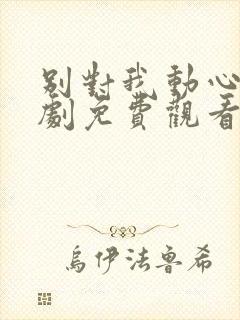 別對我動心
劇免費觀看
烏伊法魯希